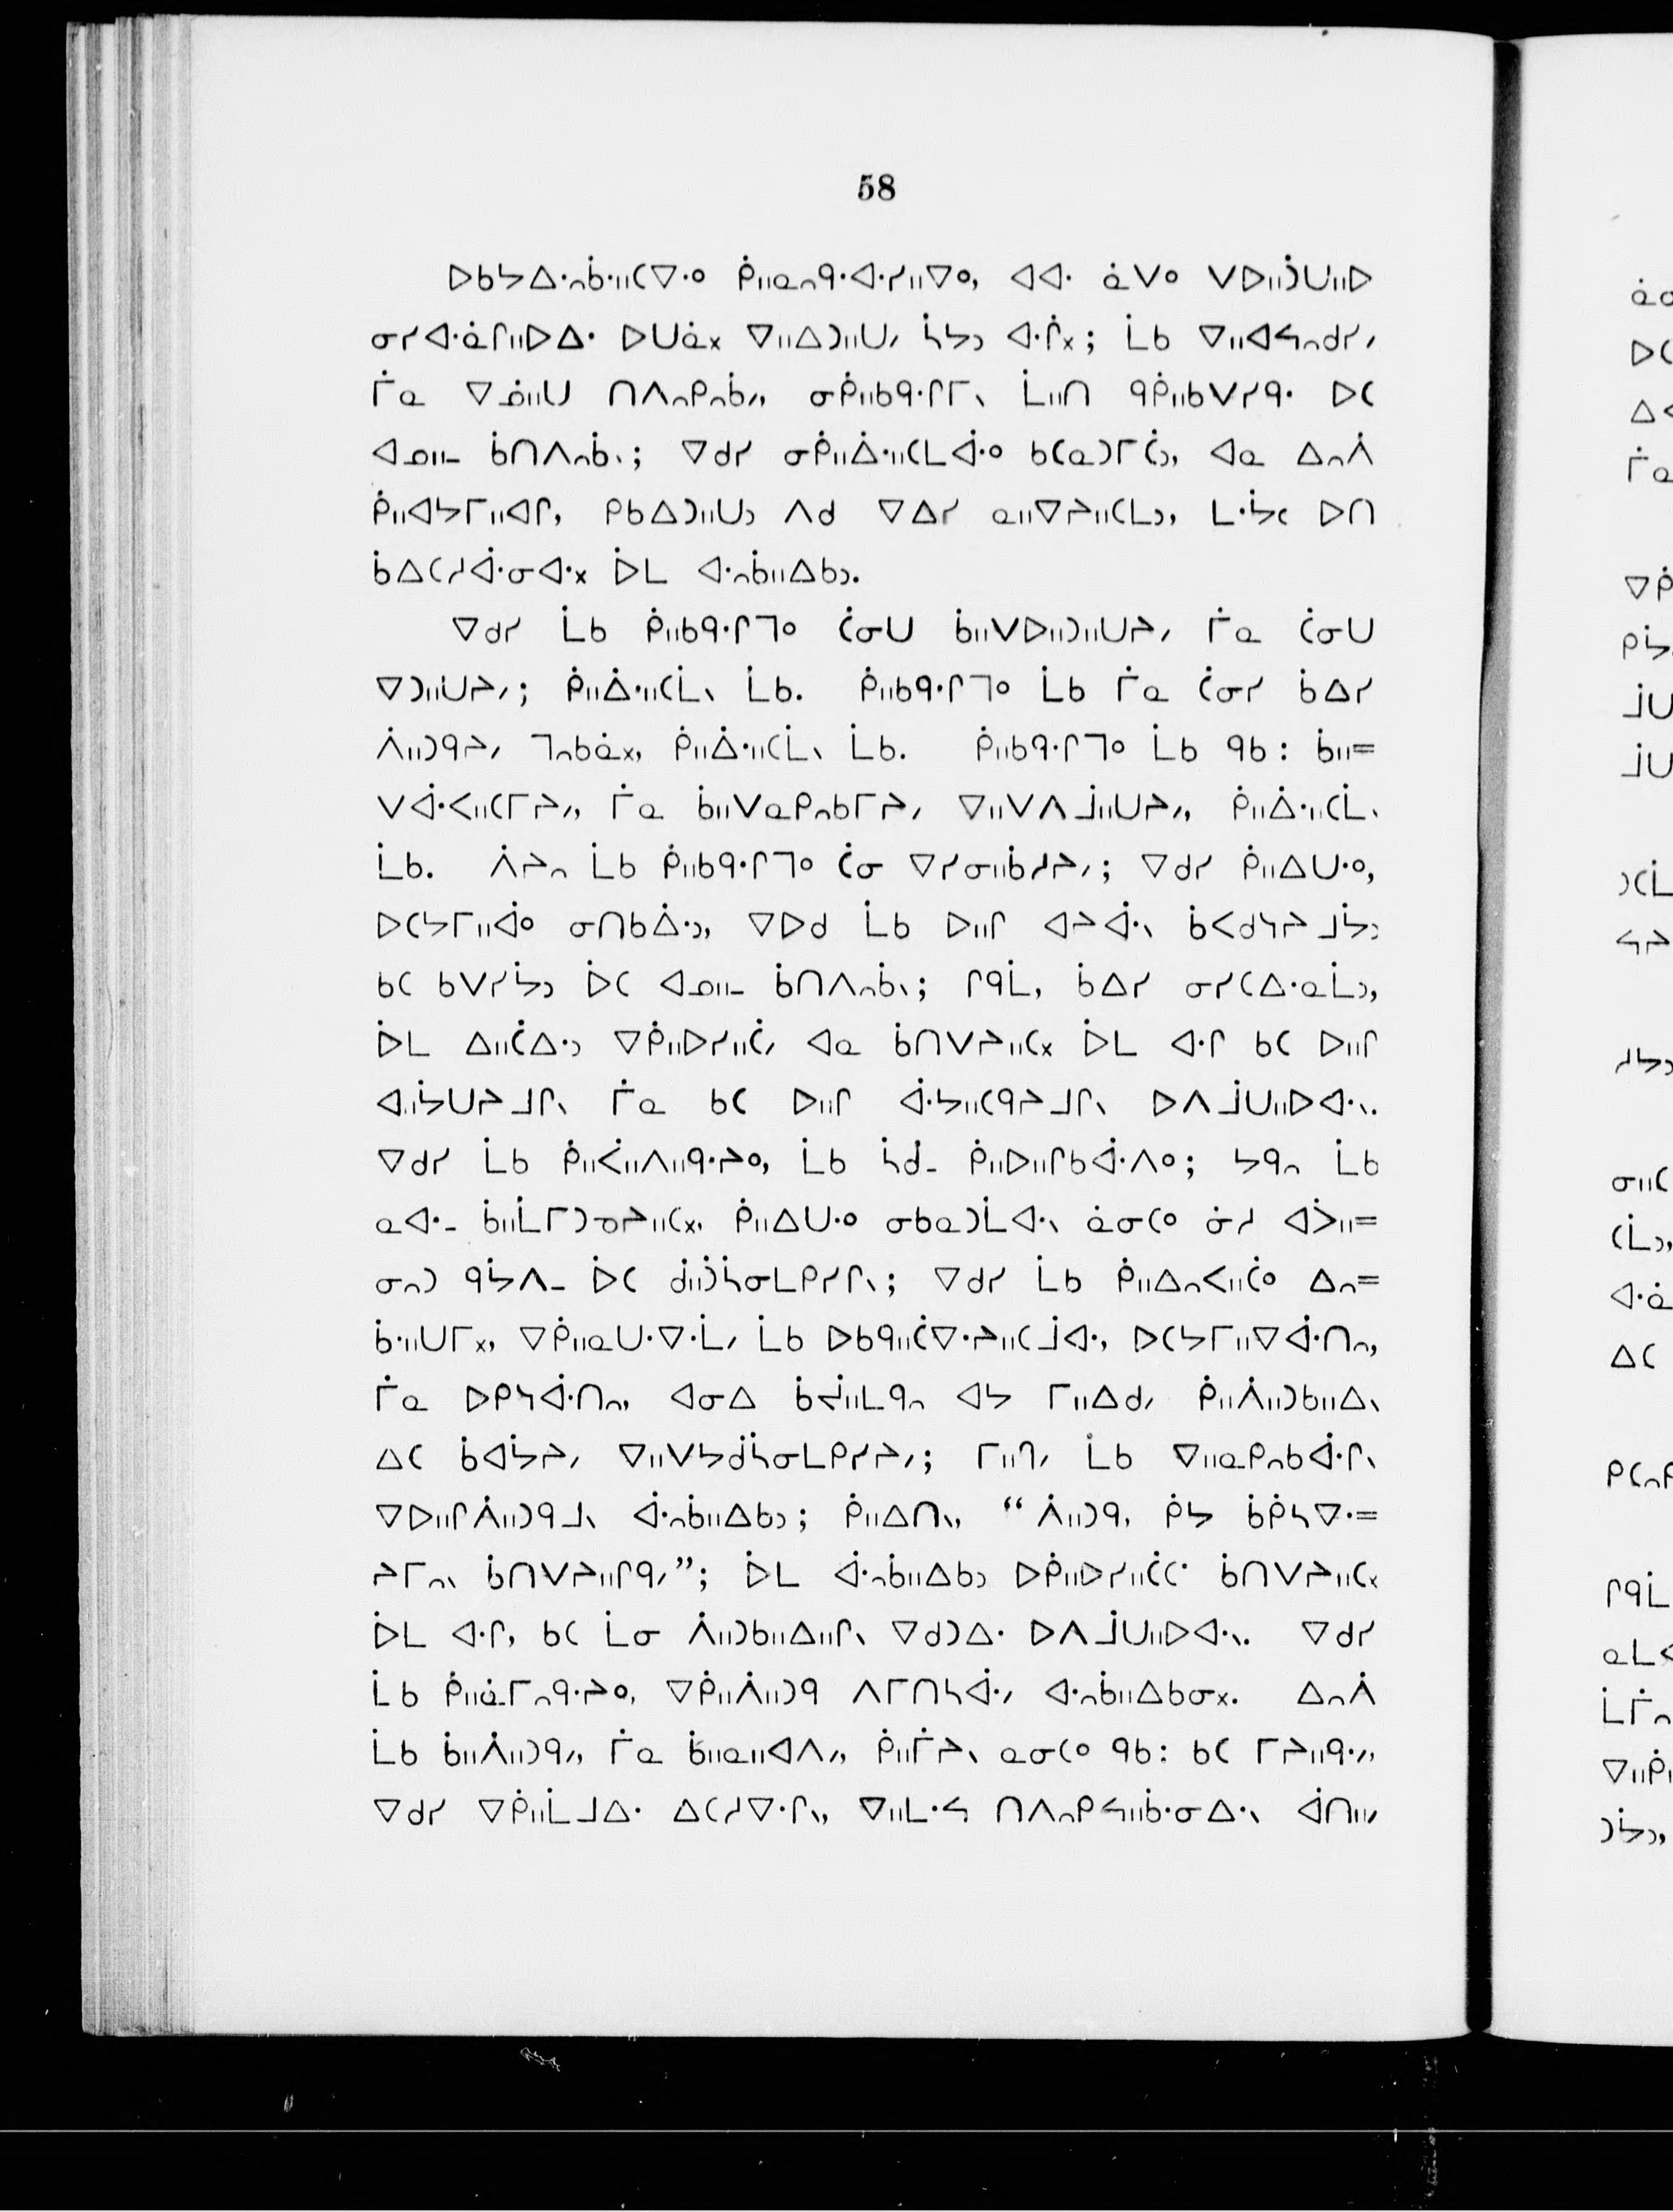 58
ᐅᑲᔭᐃᐧᐢᑳᐧᐦᑕᐁᐧᐤ ᑮᐦᓇᐢᑫᐧᐊᐧᓯᐦᐁᐤ, ᐊᐊᐧ ᓈᐯᐤ ᐯᐅᐦᑑᑌᐦᐅ
ᓂᓯᐊᐧᓈᒋᐦᐅᐃᐧ ᐅᑌᓈᕽ ᐁᐦᐃᑐᐦᑌᐟ ᓵᔭᐣ ᐊᐧᒌᕽ; ᒫᑲ ᐁᐦᐊᔕᐢᑯᓯᐟ
ᒦᓇ ᐁᓅᐦᑌ ᑎᐱᐢᑭᐢᑳᐟ, ᓂᑮᐦᑲᑫᐧᒋᒥᐠ ᒫᐦᑎ ᑫᑮᐦᑲᐯᓯᑫᐧ ᐅᑕ
ᐊᓄᐦᐨ ᑳᑎᐱᐢᑳᐠ; ᐁᑯᓯ ᓂᑮᐦᐄᐧᐦᑕᒪᐋᐧᐤ ᑲᑕᓇᑐᒥᑖᐣ, ᐊᓇ ᐃᐢᐲ
ᑮᐦᐊᔭᒥᐦᐊᒋ, ᑭᑲᐃᑐᐦᑌᐣ ᐱᑯ ᐁᐃᓯ ᓇᐦᐁᔨᐦᑕᒪᐣ, ᒪᐧᔮᐸ ᐅᑎ
ᑳᐃᑕᓱᐋᐧᓂᐊᐧᕽ ᐆᒪ ᐊᐧᐢᑳᐦᐃᑲᐣ.
ᐁᑯᓯ ᒫᑲ ᑮᐦᑲᑫᐧᒋᒣᐤ ᑖᓂᑌ ᑳᐦᐯᐅᐦᑐᐦᑌᔨᐟ ᒦᓇ ᑖᓂᑌ
ᐁᑐᐦᑌᔨᐟ; ᑮᐦᐄᐧᐦᑕᒫᐠ ᒫᑲ. ᑮᐦᑲᑫᐧᒋᒣᐤ ᒫᑲ ᒦᓇ ᑖᓂᓯ ᑳᐃᓯ
ᐲᐦᑐᑫᔨᐟ ᒣᐢᑲᓈᕽ, ᑮᐦᐄᐧᐦᑕᒫᐠ ᒫᑲ. ᑮᐦᑲᑫᐧᒋᒣᐤ ᒫᑲ ᑫᑲ: ᑳᐦ=
ᐯᐋᐧᐸᐦᑕᒥᔨᐟ, ᒦᓇ ᑳᐦᐯᓇᑭᐢᑲᒥᔨᐟ ᐁᐦᐯᐱᒨᐦᑌᔨᐟ, ᑮᐦᐄᐧᐦᑕᒫᐠ
ᒫᑲ. ᐲᔨᐢ ᒫᑲ ᑮᐦᑲᑫᐧᒋᒣᐤ ᑖᓂ ᐁᓯᓂᐦᑳᓱᔨᐟ; ᐁᑯᓯ ᑮᐦᐃᑌᐧᐤ,
ᐅᑕᔭᒥᐦᐋᐤ ᓂᑎᑲᐄᐧᐣ, ᐁᐅᑯ ᒫᑲ ᐅᐦᒋ ᐊᔨᐋᐧᐠ ᑳᐸᑯᓭᔨᒧᔮᐣ
ᑲᑕ ᑲᐯᓯᔮᐣ ᐆᑕ ᐊᓄᐦᐨ ᑳᑎᐱᐢᑳᐠ; ᒋᑫᒫ, ᑳᐃᓯ ᓂᓯᑕᐃᐧᓇᒫᐣ,
ᐆᒪ ᐃᐦᑖᐃᐧᐣ ᐁᑮᐦᐅᓯᐦᑖᐟ ᐊᓇ ᑳᑎᐯᔨᐦᑕᕽ ᐆᒪ ᐊᐧᒋ ᑲᑕ ᐅᐦᒋ
ᐊᔮᑌᔨᒧᒋᐠ ᒦᓇ ᑲᑕ ᐅᐦᒋ ᐋᐧᔭᐦᑕᑫᔨᒧᒋᐠ ᐅᐱᒨᑌᐦᐅᐊᐧᐠ.
ᐁᑯᓯ ᒫᑲ ᑮᐦᐹᐦᐱᐦᑫᐧᔨᐤ, ᒫᑲ ᓵᑰᐨ ᑮᐦᐅᐦᒋᑲᐋᐧᐱᐤ; ᔭᑫᐢ ᒫᑲ
ᓇᐊᐧᐨ ᑳᐦᒫᒥᑐᓀᔨᐦᑕᕽ, ᑮᐦᐃᑌᐧᐤ ᓂᑲᓇᑐᒫᐊᐧᐠ ᓈᓂᑕᐤ ᓃᓱ ᐊᐴᐦ=
ᓂᐢᑐ ᑫᔮᐱᐨ ᐆᑕ ᑰᐦᑑᓵᓂᒪᑭᓯᒋᐠ; ᐁᑯᓯ ᒫᑲ ᑮᐦᐃᐢᐸᐦᑖᐤ ᐃᐢ=
ᑳᐧᐦᑌᒥᕽ, ᐁᑮᐦᓇᑌᐧᐁᐧᒫᐟ ᒫᑲ ᐅᑲᑫᐦᑖᐁᐧᔨᐦᑕᒨᐊᐧ, ᐅᑕᔭᒥᐦᐁᐋᐧᑎᐢ,
ᒦᓇ ᐅᑭᓭᐋᐧᑎᐢ, ᐊᓂᐃ ᑳᔫᐦᒪᑫᐢ ᐊᔭ ᒥᐦᐃᑯᐟ ᑮᐦᐲᐦᑐᑲᐦᐃᐠ
ᐃᑕ ᑳᐊᔮᔨᐟ ᐁᐦᐯᔭᑰᓵᓂᒪᑭᓯᔨᐟ; ᒥᐦᒉᐟ ᒫᑲ ᐁᐦᓇᑭᐢᑲᐋᐧᒋᐠ
ᐁᐅᐦᒋᐲᐦᑐᑫᒧᐠ ᐋᐧᐢᑳᐦᐃᑲᐣ; ᑮᐦᐃᑎᐠ, “ ᐲᐦᑐᑫ, ᑮᔭ ᑳᑮᓴᐁᐧ=
ᔨᒥᐢᐠ ᑳᑎᐯᔨᐦᒋᑫᐟ”; ᐆᒪ ᐋᐧᐢᑳᐦᐃᑲᐣ ᐅᑮᐦᐅᓯᐦᑖᑕᐧ ᑳᑎᐯᔨᐦᑕᕽ
ᐆᒪ ᐊᐧᒋ, ᑲᑕ ᒫᓂ ᐲᐦᑐᑲᐦᐃᐦᒋᐠ ᐁᑯᑐᐃᐧ ᐅᐱᒨᑌᐦᐅᐊᐧᐠ. ᐁᑯᓯ
ᒫᑲ ᑮᐦᓈᒥᐢᑫᐧᔨᐤ, ᐁᑮᐦᐲᐦᑐᑫ ᐱᒥᑎᓴᐋᐧᐟ ᐊᐧᐢᑳᐦᐃᑲᓂᕽ. ᐃᐢᐲ
ᒫᑲ ᑳᐦᐲᐦᑐᑫᐟ, ᒦᓇ ᑳᐦᓇᐦᐊᐱᐟ, ᑮᐦᒦᔨᐠ ᓇᓂᑕᐤ ᑫᑲ: ᑲᑕ ᒥᔨᐦᑫᐧᐟ,
ᐁᑯᓯ ᐁᑮᐦᒫᒧᐃᐧ ᐃᑕᓱᐁᐧᒋᐠ, ᐁᐦᒪᐧᔕ ᑎᐱᐢᑭᔕᐦᑳᐧᓂᐃᐧᐠ ᐋᑎᐦᐟ